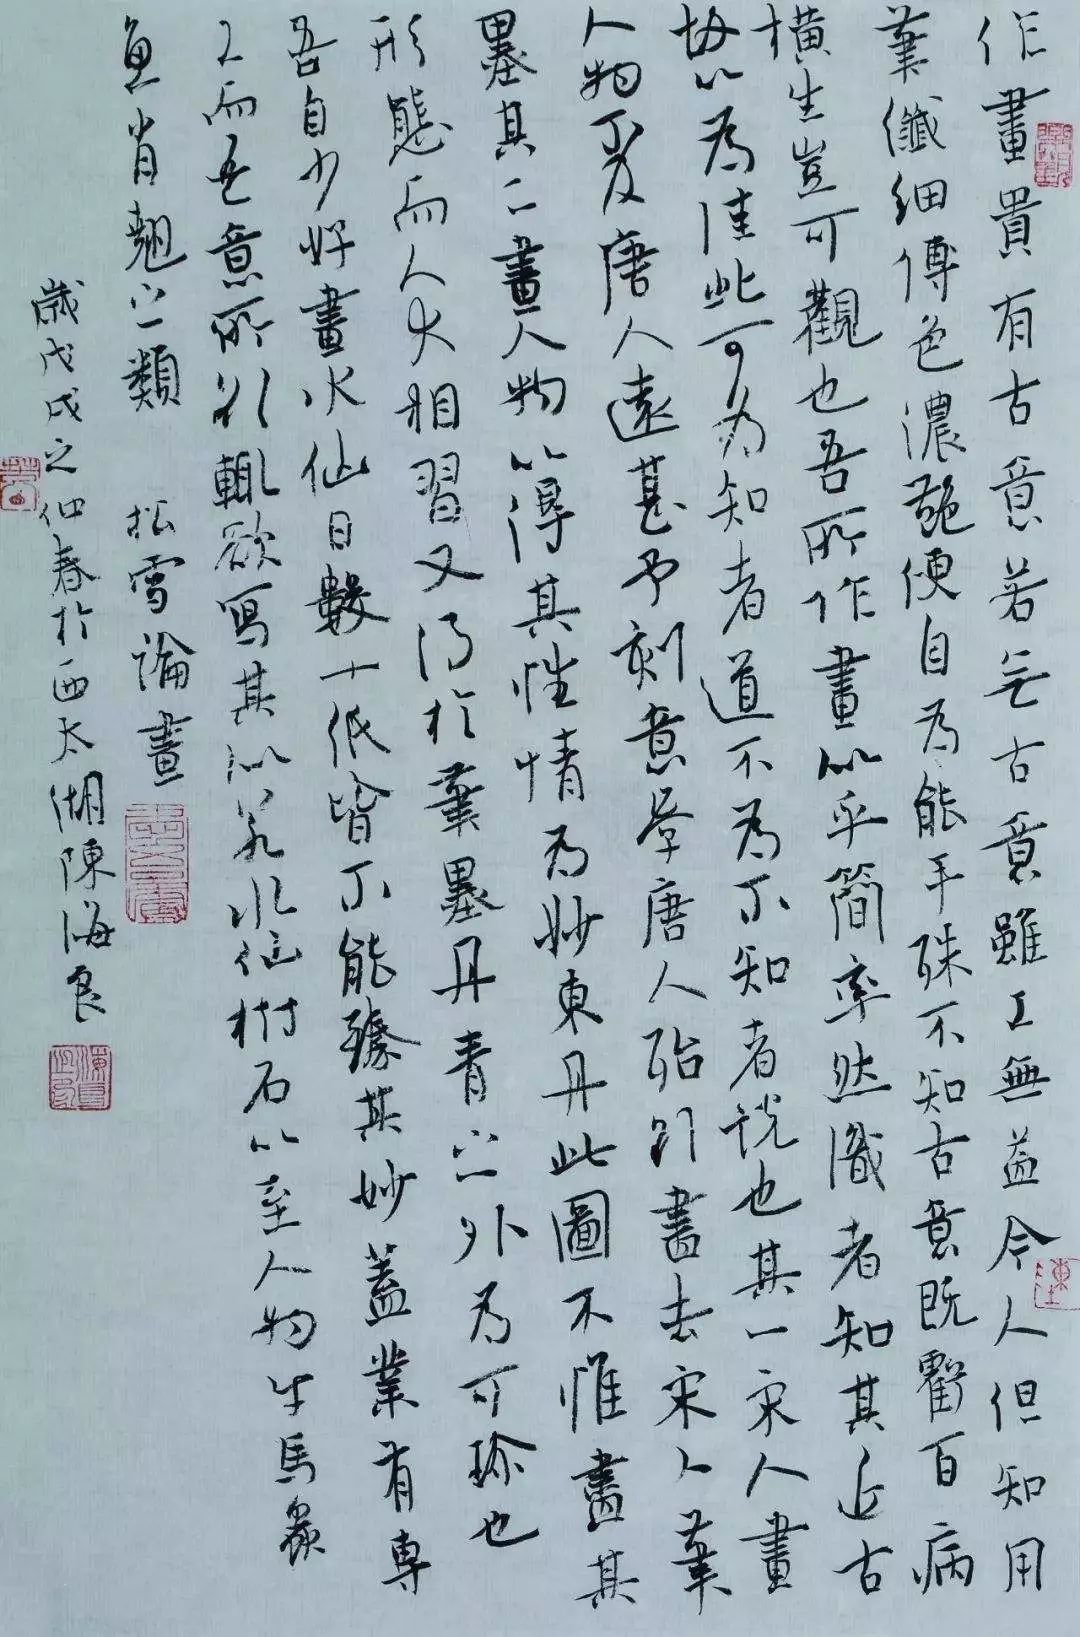 作畫貴有古意若无古意雖工無益今人但知用
筆纖細傅色濃艷便自為能手殊不知古意既虧百病
橫生豈可觀也吾所作畫似乎簡率然識者知其近古
故以為佳此可為知者道不為不知者說也其一宋人畫
人物不及唐人遠甚予刻意學唐人殆欲盡去宋人筆
墨其二畫人物以得其性情為妙東丹此圖不惟盡其
形態而人犬相習又得於筆墨丹青之外為可珍也
吾自少好畫水仙日數十紙皆不能臻其妙蓋業有專
工而吾意所到輒欲寫其似若水仙樹石以至人物牛馬蟲
魚肖翹之類 松雪論畫
歲戊戌之仲春於西太湖陳海良